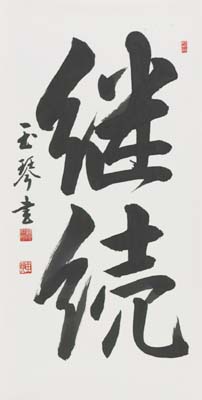 継続
玉琴書